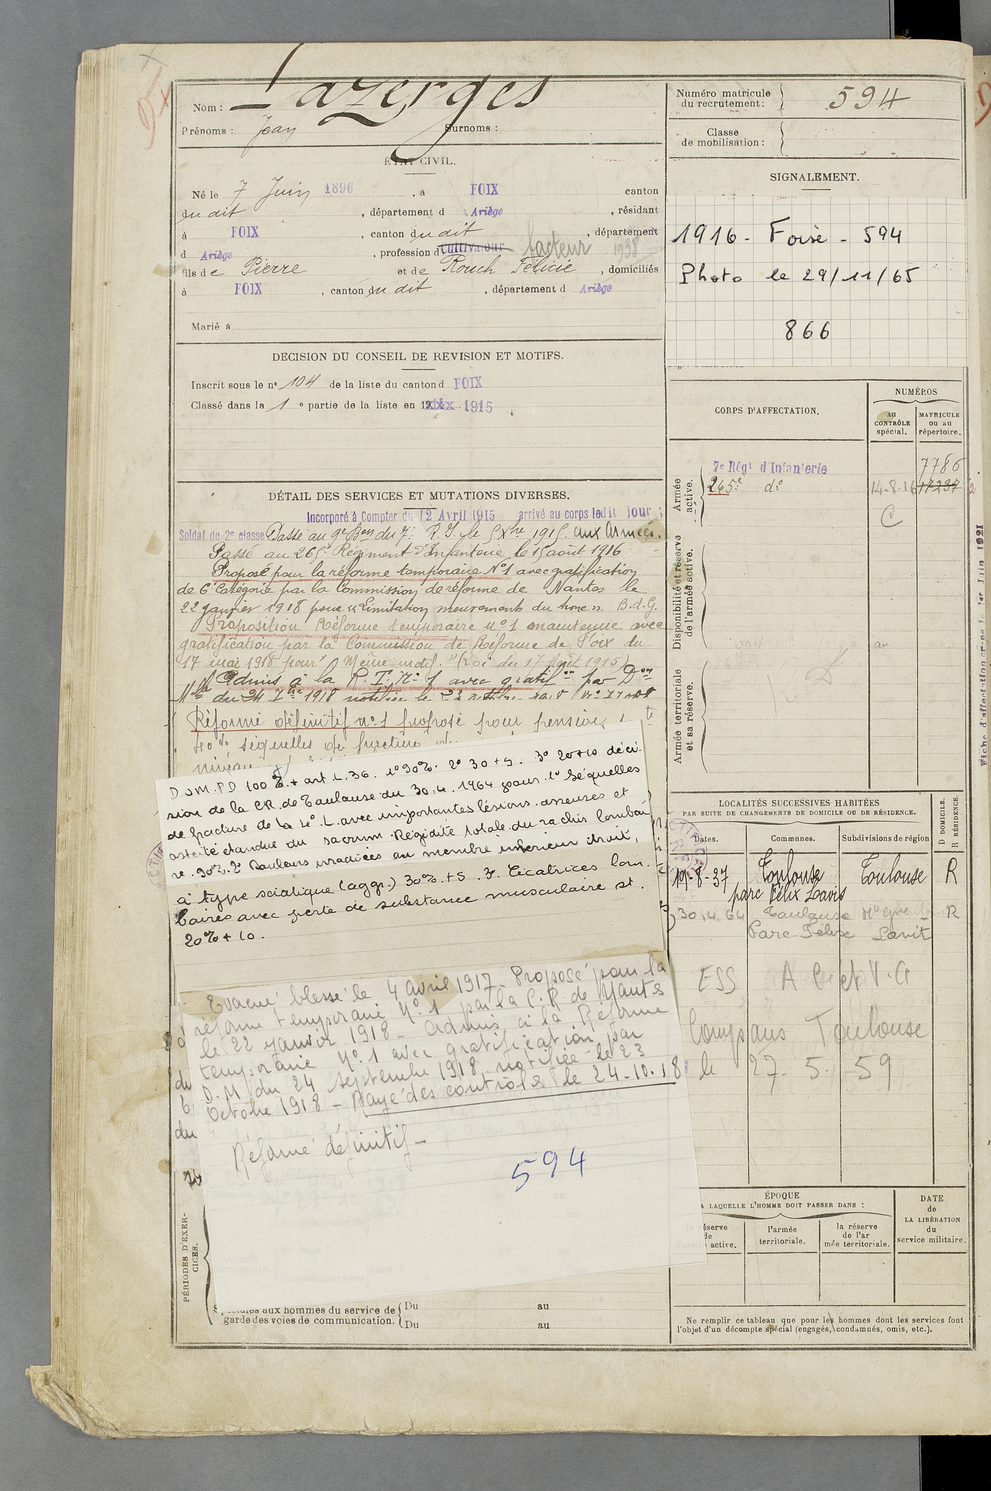 Nom : Lazerges
Prénoms : Jean Surnoms :
ÉTAT CIVIL.
Né le 7 Juin 1896, à FOIX canton
du dit, département d Ariège, résidant
à FOIX, canton du dit, département
d Ariège, profession d cultivateur facteur 1938
fils de Pierre et de Rouch Félicie, domiciliés
à FOIX, canton du dit, département d Ariège
Marié à
DECISION DU CONSEIL DE REVISION ET MOTIFS.
Inscrit sous le n° 104 de la liste du canton d FOIX
Classé dans la 1e partie de la liste en 1915
DÉTAIL DES SERVICES ET MUTATIONS DIVERSES.
Incorporé à Compter du 12 Avril 1915 arrivé au corps ledit jour ;
Soldat de 2e classe Passé au 9e Bon du 7e R.I. le 5 Xbre 1915 aux Armées.
Passé au 265e Régiment d'Infanterie le 15 août 1916
Proposé pour la réforme temporaire N°1 avec gratification
de 6e Catégorie par la Commission de réforme de Nantes le
22 janvier 1918 pour "Limitation mouvements du tronc". B.d.G.
Proposition Réforme temporaire n°1 maintenue avec
gratification par la Commission de Réforme de Foix du
17 mai 1918 pour "Même motif." (Loi du 17 Août 1915)
Admis à la R.T. N°1 avec gratifon par Don
Mlle du 24 7bre 1918 notifiée le
Réformé définitif n°1 proposé pour pension
séquelles de fracture
D.J.M. P.D 100% + art. L.36. 1° 90%. 2° 30+5. 3° 20+10 déci-
sion de la C.R. de Toulouse du 30.4.1964 pour: 1° Séquelles
de fracture de la 4° L. avec importantes lésions osseuses et
ostéité étendue du sacrum. Rigidité totale du rachis lombai-
re. 90%. 2° Douleurs irradiées au membre inférieur droit,
à type sciatique (aggr.) 30% + 5. 3° Cicatrices lom-
baires avec perte de substance musculaire st.
20% + 10.
Evacué blessé le 4 avril 1917. Proposé pour la
réforme temporaire N°1 par la C.R. de Nantes
le 22 janvier 1918 - Admis à la Réforme
temporaire N°1 avec gratification par
D.M. du 24 septembre 1918, notifiée le 23
Octobre 1918 - Rayé des contrôles le 24-10-18
Réformé définitif -
594
du
du
PÉRIODES D'EXER-
CICES.
Spéciales aux hommes du service de
garde des voies de communication.
Du au
Du au
Numéro matricule
du recrutement : 594
Classe
de mobilisation :
SIGNALEMENT.
1916 - Foix - 594
Photo le 29/11/65
866
CORPS D'AFFECTATION.
NUMÉROS
AU
CONTRÔLE
spécial.
MATRICULE
ou au
répertoire.
Armée
active.
7e Régt d'Infanterie 7786
265e d° 14-8-16 17297
C
Disponibilité et réserve
de l'armée active.
Armée territoriale
et sa réserve.
LOCALITÉS SUCCESSIVES HABITÉES
PAR SUITE DE CHANGEMENTS DE DOMICILE OU DE RÉSIDENCE.
Dates. Communes. Subdivisions de région
D DOMICILE.
R RÉSIDENCE.
19-8-37 Toulouse Toulouse R
parc Félix Lavit
30.4.64 Toulouse R
Parc Félix Lavit
ESS A C et V.G
Comp ans Toulouse
le 27-5-59
ÉPOQUE
À LAQUELLE L'HOMME DOIT PASSER DANS :
réserve
de
active.
l'armée
territoriale.
la réserve
de l'ar
mée territoriale.
DATE
de
LA LIBÉRATION
du
service militaire.
Ne remplir ce tableau que pour les hommes dont les services font
l'objet d'un décompte spécial (engagés, condamnés, omis, etc.).